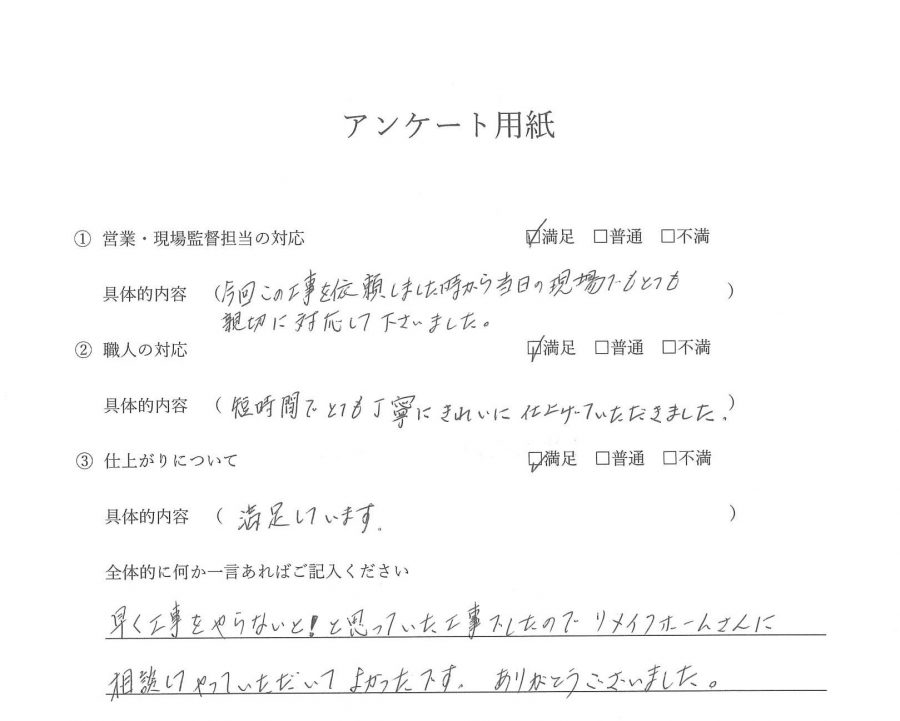 アンケート用紙
① 営業・現場監督担当の対応 ☑満足 □普通 □不満
具体的内容 (今回この工事を依頼しました時から当日の現場でもとても )
親切に対応して下さいました。
② 職人の対応 ☑満足 □普通 □不満
具体的内容 ( 短時間でとても丁寧にきれいに仕上げていただきました。)
③ 仕上がりについて ☑満足 □普通 □不満
具体的内容 ( 満足しています。 )
全体的に何か一言あればご記入ください
早く工事をやらないと!と思っていた工事でしたのでリメイクホームさんに
相談してやっていただいてよかったです。ありがとうございました。